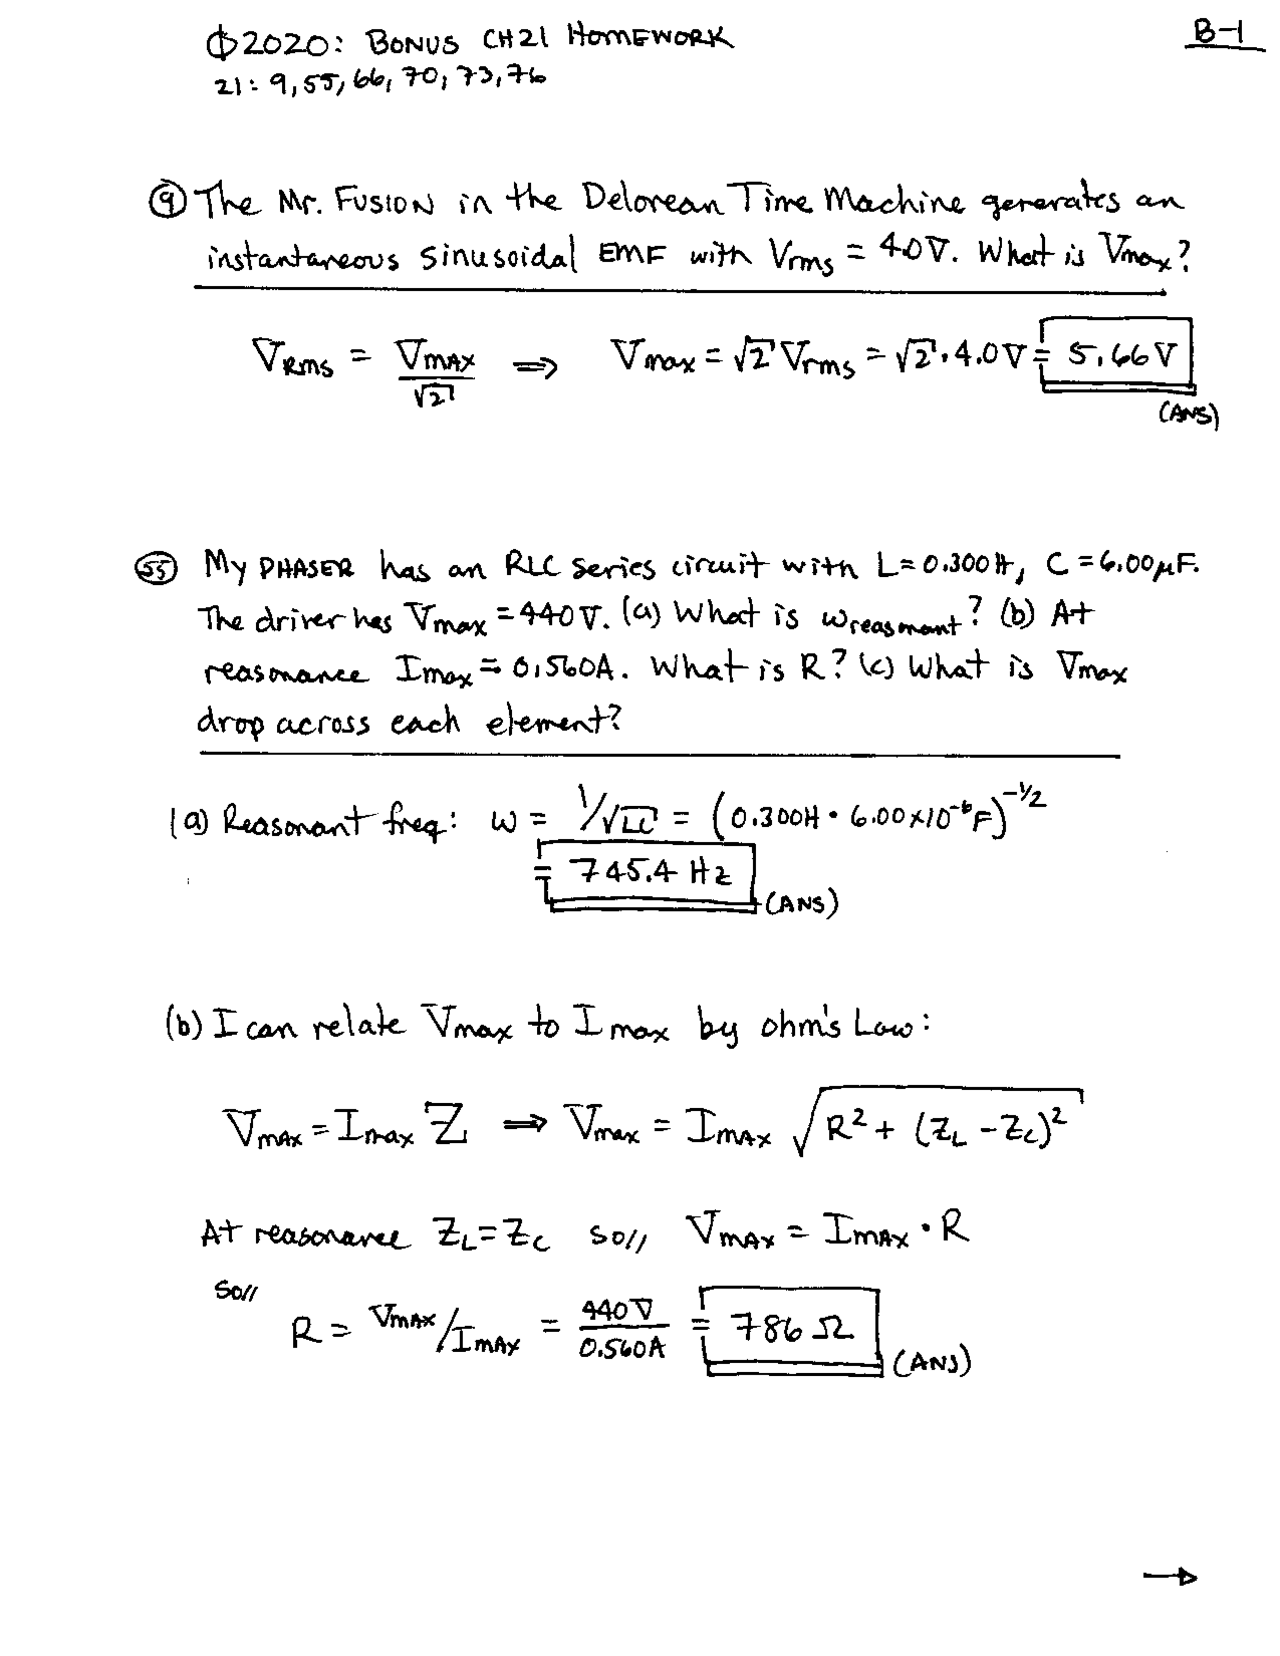 Φ2020: BONUS CH21 HOMEWORK
B-1
21: 9, 55, 66, 70, 73, 76
⑨ The Mr. FUSION in the Delorean Time Machine generates an
instantaneous sinusoidal EMF with Vrms = 4.0V. What is Vmax?
VRMS = VMAX/√2 ⇒ Vmax = √2 Vrms = √2 · 4.0V = 5.66 V
(ANS)
55 My PHASER has an RLC series circuit with L = 0.300H, C = 6.00μF.
The driver has Vmax = 440V. (a) What is ωreasonant? (b) At
reasonance Imax = 0.560A. What is R? (c) What is Vmax
drop across each element?
(a) Reasonant freq: ω = 1/√LC = (0.300H · 6.00×10⁻⁶F)^-1/2
= 745.4 Hz
(ANS)
(b) I can relate Vmax to Imax by ohm's Law:
VMAX = Imax Z ⇒ Vmax = IMAX √(R² + (ZL - ZC)²)
At reasonance ZL = ZC so// VMAX = IMAX · R
so//
R = VMAX/IMAX = 440V/0.560A = 786 Ω
(ANS)
→